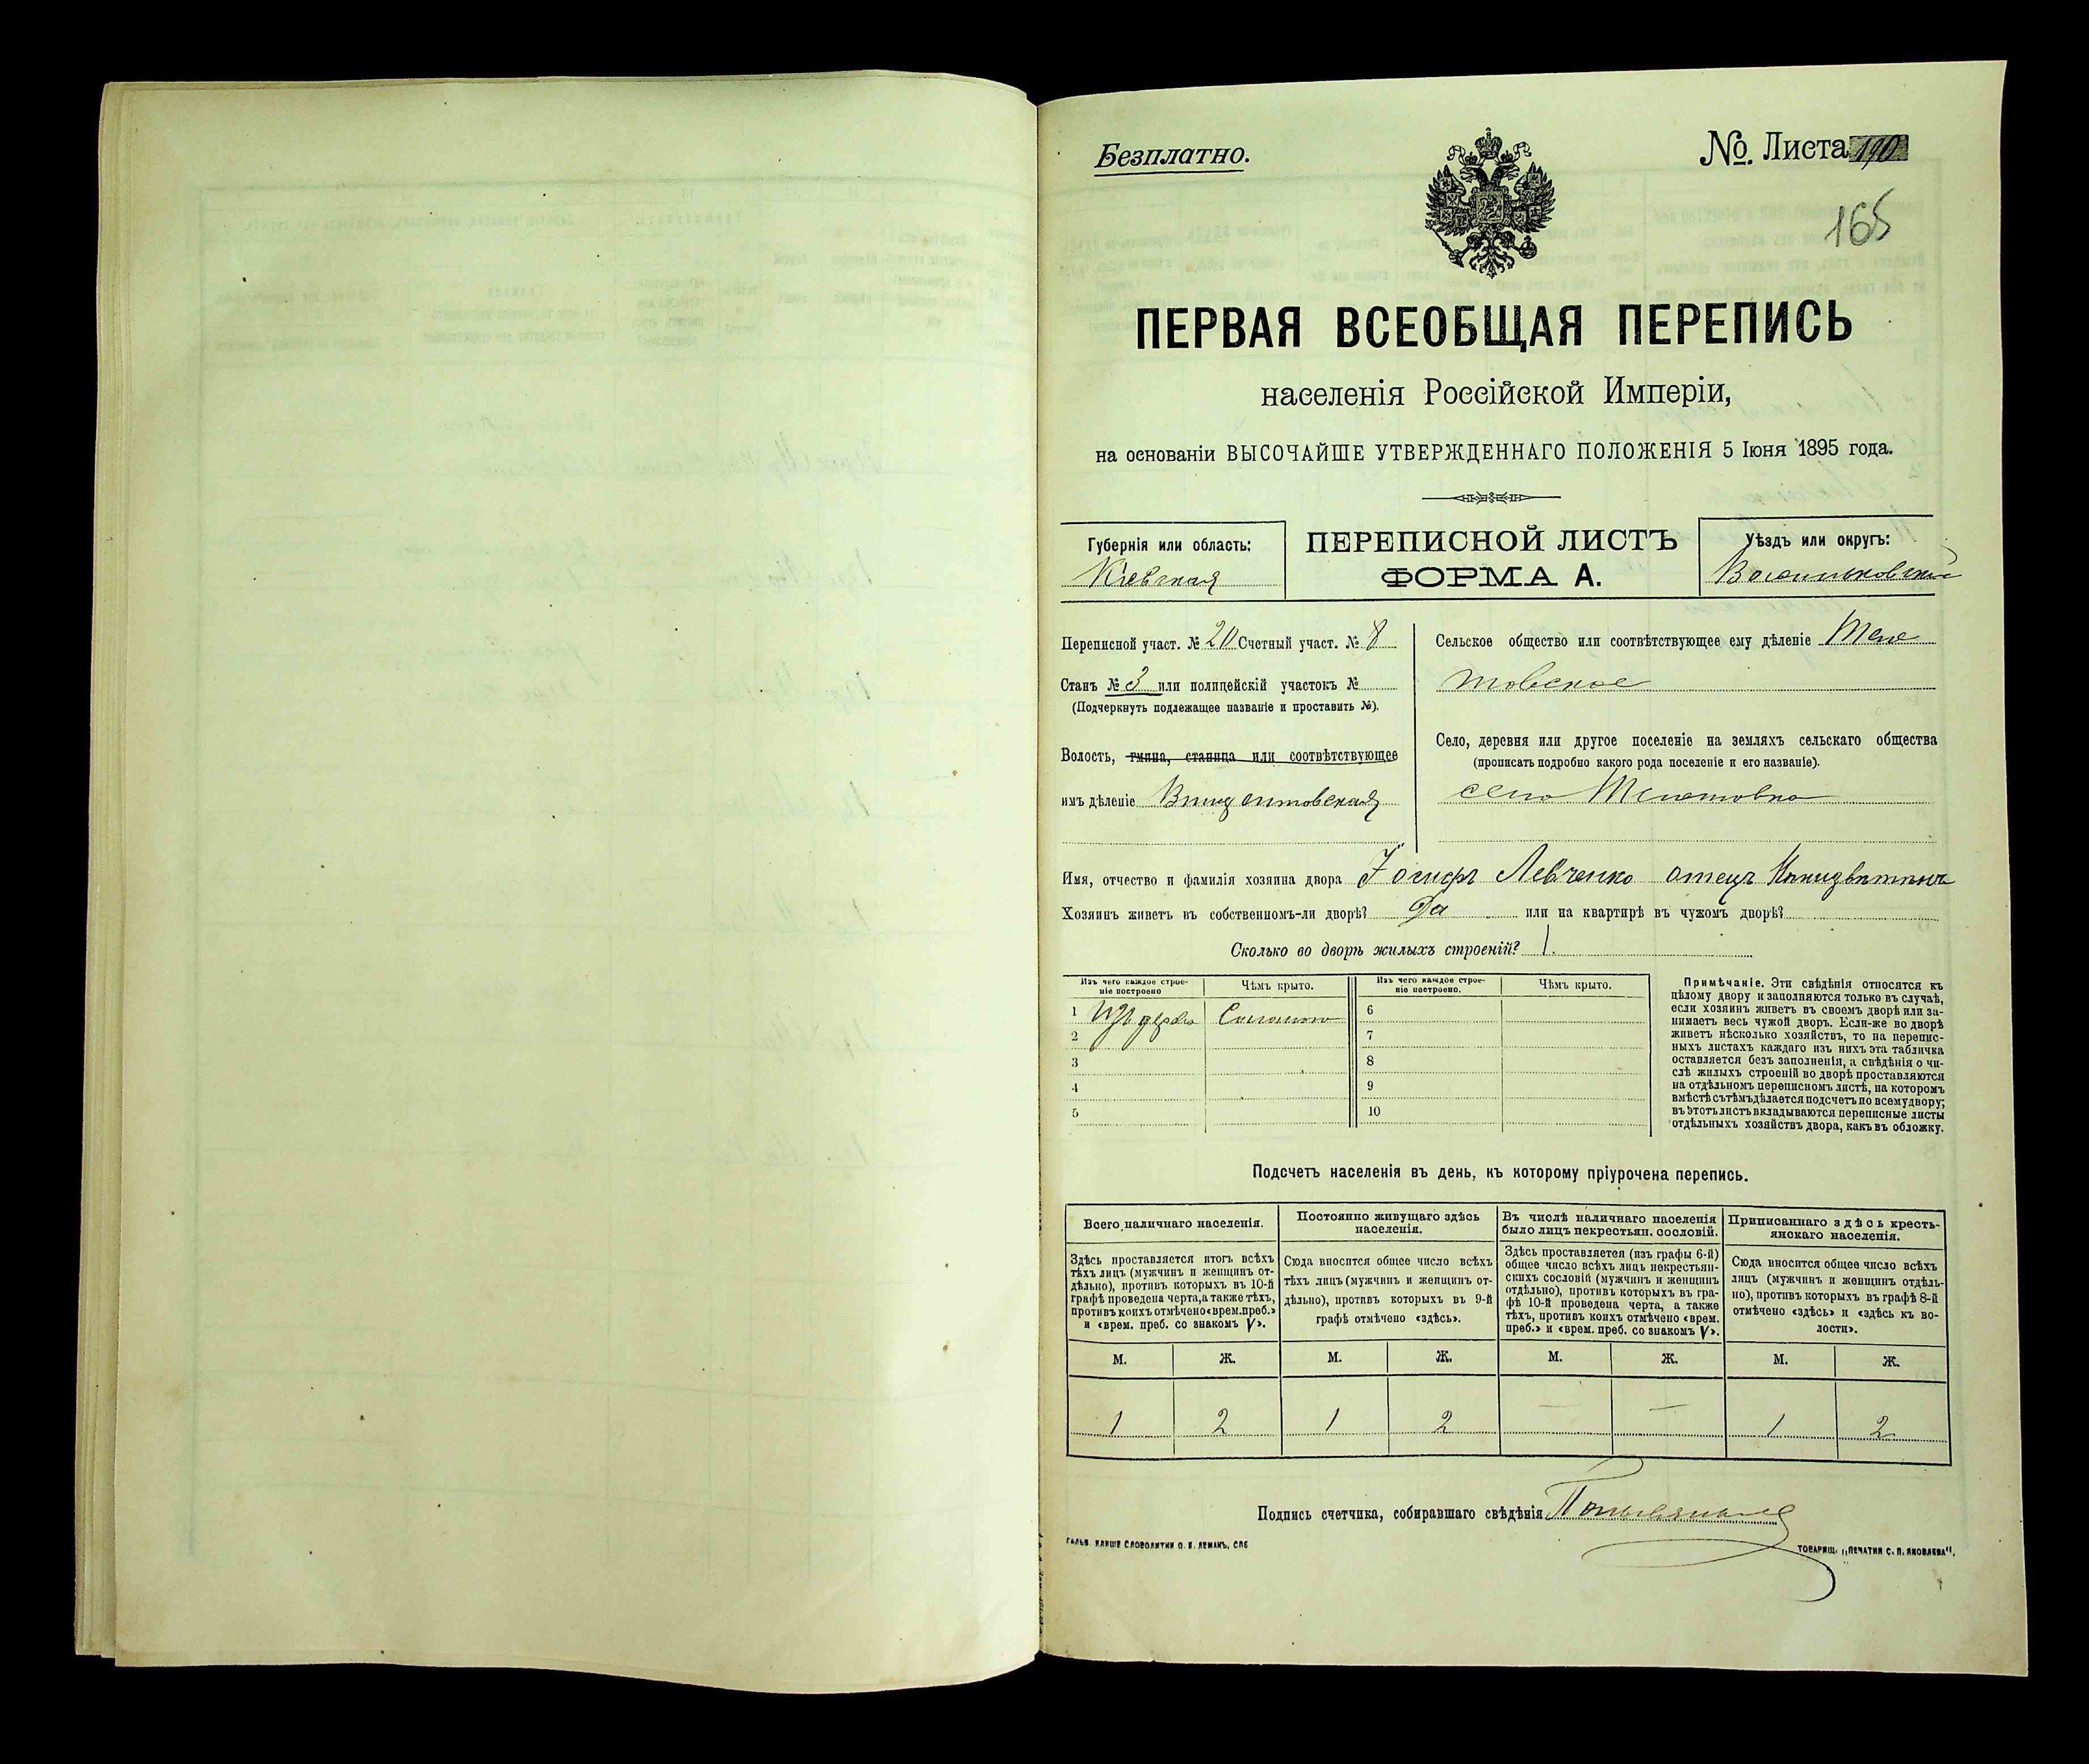 Безплатно.
№. Листа 190
165
ПЕРВАЯ ВСЕОБЩАЯ ПЕРЕПИСЬ
населенія Россійской Имперіи,
на основаніи ВЫСОЧАЙШЕ УТВЕРЖДЕННАГО ПОЛОЖЕНІЯ 5 Іюня 1895 года.
Губернія или область:
Кіевская
ПЕРЕПИСНОЙ ЛИСТЪ
ФОРМА А.
Уѣздъ или округъ:
Васильковскій
Переписной участ. № 20 Счетный участ. № 8
Станъ № 3 или полицейскій участокъ №
(Подчеркнуть подлежащее названіе и проставить №).
Волость, гмина, станица или соотвѣтствующее
имъ дѣленіе Винцентовская
Сельское общество или соотвѣтствующее ему дѣленіе
Село, деревня или другое поселеніе на земляхъ сельскаго общества
(прописать подробно какого рода поселеніе и его названіе).
село
Имя, отчество и фамилія хозяина двора Іосифъ Левченко отецъ
Хозяинъ живетъ въ собственномъ-ли дворѣ? Да или на квартирѣ въ чужомъ дворѣ?
Сколько во дворѣ жилыхъ строеній? 1.
Изъ чего каждое строе-
ніе построено
Чѣмъ крыто.
Изъ чего каждое строе-
ніе построено.
Чѣмъ крыто.
1 Изъ дерева Соломою
2
3
4
5
6
7
8
9
10
Примѣчаніе. Эти свѣдѣнія относятся къ
цѣлому двору и заполняются только въ случаѣ,
если хозяинъ живетъ въ своемъ дворѣ или за-
нимаетъ весь чужой дворъ. Если-же во дворѣ
живетъ нѣсколько хозяйствъ, то на перепис-
ныхъ листахъ каждаго изъ нихъ эта табличка
оставляется безъ заполненія, а свѣдѣнія о чи-
слѣ жилыхъ строеній во дворѣ проставляются
на отдѣльномъ переписномъ листѣ, на которомъ
вмѣстѣ съ тѣмъ дѣлается подсчетъ по всему двору;
въ этотъ листъ вкладываются переписные листы
отдѣльныхъ хозяйствъ двора, какъ въ обложку.
Подсчетъ населенія въ день, къ которому пріурочена перепись.
Всего наличнаго населенія.
Здѣсь проставляется итогъ всѣхъ
тѣхъ лицъ (мужчинъ и женщинъ от-
дѣльно), противъ которыхъ въ 10-й
графѣ проведена черта, а также тѣхъ,
противъ коихъ отмѣчено «врем. преб.»
и «врем. преб. со знакомъ V».
Постоянно живущаго здѣсь
населенія.
Сюда вносится общее число всѣхъ
тѣхъ лицъ (мужчинъ и женщинъ от-
дѣльно), противъ которыхъ въ 9-й
графѣ отмѣчено «здѣсь».
Въ числѣ наличнаго населенія
было лицъ некрестьян. сословій.
Здѣсь проставляется (изъ графы 6-й)
общее число всѣхъ лицъ некрестьян-
скихъ сословій (мужчинъ и женщинъ
отдѣльно), противъ которыхъ въ гра-
фѣ 10-й проведена черта, а также
тѣхъ, противъ коихъ отмѣчено «врем.
преб.» и «врем. преб. со знакомъ V».
Приписаннаго здѣсь кресть-
янскаго населенія.
Сюда вносится общее число всѣхъ
лицъ (мужчинъ и женщинъ отдѣль-
но), противъ которыхъ въ графѣ 8-й
отмѣчено «здѣсь» и «здѣсь къ во-
лости».
М. Ж. М. Ж. М. Ж. М. Ж.
1 2 1 2 — — 1 2
Подпись счетчика, собиравшаго свѣдѣнія
ГАЛЬВ. КЛИШЕ СЛОВОЛИТНИ О. И. ЛЕМАНЪ, СПБ
ТОВАРИЩ. „ПЕЧАТНЯ С. П. ЯКОВЛЕВА“.